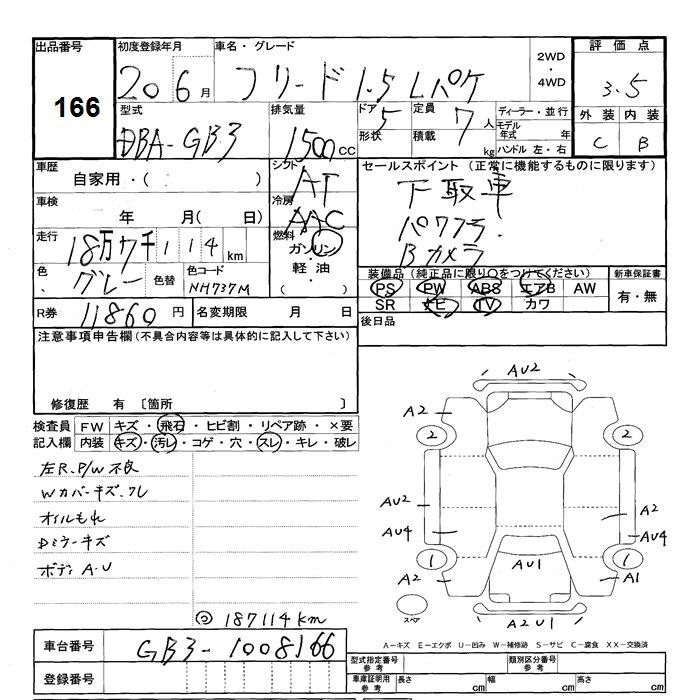 出品番号 初度登録年月 車名・グレード 2WD・4WD 評価点
166 20 6月 フリード 1.5 Lパケ 3.5
型式 排気量 ドア 5 定員 7人 ディーラー・並行 外装 内装
DBA-GB3 1500cc 形状 積載 kg モデル年式 年 C B
ハンドル 左・右
車歴 シフト セールスポイント (正常に機能するものに限ります)
自家用・( ) AT 下取車
車検 年 月( 日) 冷房 AAC パワスラ.
走行 18万7千114km 燃料 ガソリン・軽油・( ) Bカメラ
色 グレー 色替 色コード NH737M 装備品 (純正品に限り○をつけてください) 新車保証書
PS PW ABS エアB AW 有・無
R券 11860円 名変期限 月 日 SR ナビ TV カワ
注意事項申告欄 (不具合内容等は具体的に記入して下さい) 後日品
修復歴 有 〔箇所 〕
検査員記入欄 FW キズ・飛石・ヒビ割・リペア跡・×要
内装 キズ・汚レ・コゲ・穴・スレ・キレ・破レ
左R.P/W不良
Wカバーキズ.ワレ
オイルもれ
Dミラーキズ
ボディA.U
187114km
AU2
A2
2 2
AU2 A2
AU4 AU4
1 AU1 1
A2 A1
スペア A2U1
A-キズ E-エクボ U-凹み W-補修跡 S-サビ C-腐食 XX-交換済
車台番号 GB3-1008166
型式指定番号 参考 類別区分番号 参考
登録番号 車庫証明用 参考 長さ cm 幅 cm 高さ cm